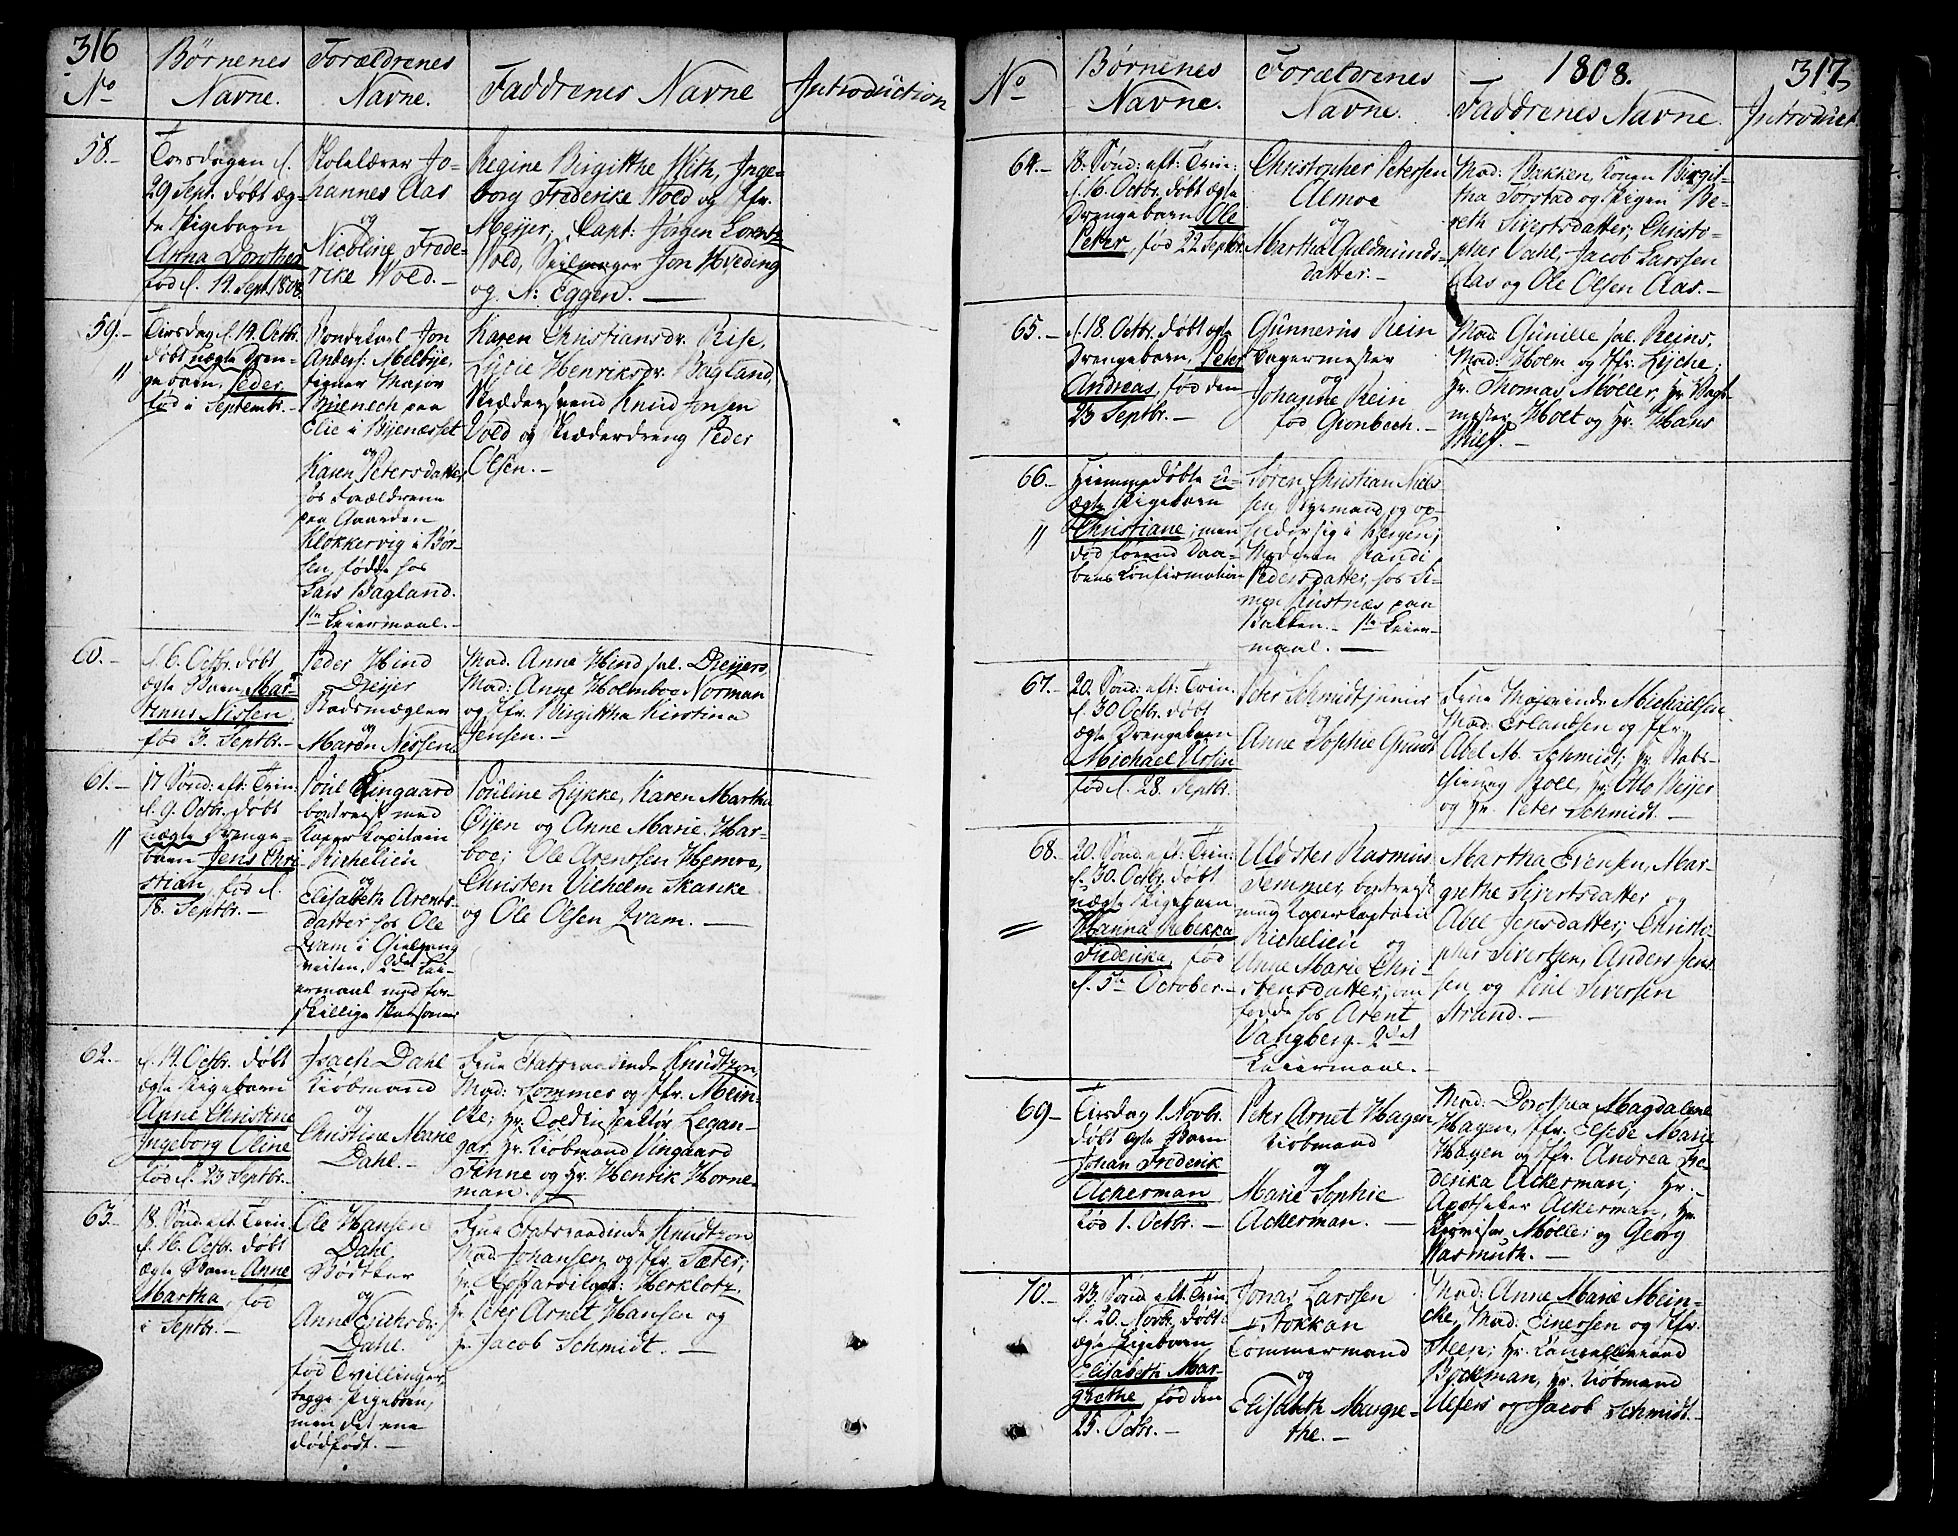 316
No
Børnenes
Navne.
Forældrenes
Navne.
Faddrenes Navne
Introduction
58.-
Torsdagen d.
29 Sept. døbt æg-
te Pigebarn
Anna Dorothea
fød d. 12. Sept. 1808
Skolelærer Jo-
hannes Aas
og
Nicoline Frede-
rike Wold.-
Regine Birgitthe With, Inge-
borg Frederike Wold og Jfr.
Meyer; Capt: Jørgen Lorentz
Wold, Seilmager Jon Hveding
og N: Eggen.-
59.-
Tirsdag d. 14. Octbr.
døbt uægte Dren-
gebarn, Peder
fød i Septembr.-
Bondekarl Jon
Anders: Melbye,
tiener Major
paa
Elie i Byenæsset
og
Karen Petersdatter
hos Forældrene
paa Gaarden
Klokkervig i Bør-
sen, fødde hos
Lars Bagland.
1te Leiermaal.-
Karen Christiansdr. Rise,
Lycie Henriksdr. Bagland,
Skrædersvend Knud Jonsen
Vold og Skræderdreng Peder
Olsen.-
60.-
d. 6. Octbr. døbt
ægte Barn Mar-
thinus Nissen,
fød 3. Septbr.-
Peder Hind
Dreyer
Stadsmægler
og
Maren Nissen
Mad. Anne Hind sal. Dreyers,
Mad: Anne Holmboe Norman
og Jfr. Birgitha Kirstina
Jensen.-
61.-
17 Sønd: eft: Trin:
d. 9. Octbr. døbt
uægte Drenge-
barn Jens Chri-
stian, fød d.
18. Septbr.-
Poul Lingaard
bortreyst med
Kaper Kapitain
Richelieu
og
Elisabeth Arents-
datter hos Ole
Kvam i Gielvang
veiten, 2det Lei-
ermaal med for-
skillige Personer
Pouline Lykke, Karen Martha
Øyen og Anne Marie Har-
boe; Ole Arentsen Hemre,
Christen Vilhelm Skanke
og Ole Olsen Kvam.-
62.-
d. 14. Octbr. døbt
ægte Pigebarn
Anne Christine
Ingeborg Oline
fød d. 23 Septbr.-
Isach Dahl
Kiøbmand
og
Christine Marie
Dahl.-
Frue Etatsraadinde Knudtzon,
Mad: Sommer og Jfr. Mein-
cke; Hr. Toldinspektør Legan-
gar, Hr. Kiøbmand Vingaard
Finne og Hr. Henrik Horne-
man.-
63.-
18. Sønd: eft: Trin:
d. 16. Octbr. døbt
ægte Barn Anne
Martha, fød
i Septbr.-
Ole Hansen
Dahl,
Bødtker
og
Anne Ericksdr.
Dahl.
fød Tvillinger,
begge Pigebørn,
men det ene
dødfødt.-
Frue Etatsraadinde Knudtzon
Mad. Johansen og Jfr. Sæter;
Hr. Herklotz,
Hr. Peter Arnet Hansen og
Hr. Jacob Schmidt.-
1808.
317
No
Børnenes
Navne.
Forældrenes
Navne.
Faddrenes Navne.
Introduct
64.-
18. Sønd: eft: Trin:
d. 16. Octbr. døbt ægte
Drengebarn Ole
Peter, fød 22. Septbr.
Christopher Petersen
Almoe
og
Martha Guldmunds-
datter.-
Mad: Bakken, Konen Birgit-
tha Torstad og Pigen Be-
reth Sivertsdatter; Christo-
pher Vahl, Jacob Larssen
Aas og Ole Olsen Aas.-
65.-
d. 18. Octbr. døbt ægte
Drengebarn, Peter
Andreas, fød den
23 Septbr.-
Gunnerus Rein
Bagermester
og
Johanne Rein
fød Grønbech.-
Mad. Gunille sal. Reins,
Mad: Holm og Jfr. Lyche;
Hr. Thomas Møller, Hr. Bag-
mester Holt og Hr. Hans
66.-
Hiemmedøbte u-
ægte Pigebarn
Christiane; men
død forend Daa-
bens Confirmation
Søren Christian Niels-
sen, Styrmand, og op-
holder sig i Bergen;
Moderen Randi
Pedersdatter, hos Si-
men Rustnæs paa
Bakken.- 1te Leier-
maal.-
67.-
20. Sønd: eft: Trin.
d. 30 Octbr. døbt
ægte Drengebarn
Michael Ursin
fød d. 28. Septbr.
Peter Schmidt junior
og
Anne Sophie Grundt
Frue Majorinde Michaelsen,
Mad: Erlandsen og Jfr.
Abel M. Schmidt; Hr. Stabs-
chirurg Roll, Hr. Otto Beyer
og Hr. Peter Schmidt.-
68.-
20. Sønd: eft: Trin:
d. 30. Octbr. døbt
uægte Pigebarn
Hanna Rebekka
Frederika, fød
d. 5te October.-
Uldster Rasmus
Temmer, bortreyst
med Kaper Kaptain
Richelieu og
Anne Marie Chri-
stensdatter,
fødde hos Arent
Vangberg.- 2det
Leiermaal.-
Martha Evensen, Mar-
grethe Sivertsdatter og
Abel Jensdatter; Christo-
pher Sivertsen, Anders Jens-
sen og Poul Siversen
Strand.-
69.-
Tirsdag 1. Novbr.
døbt ægte Barn
Johan Frederik
Ackerman
fød 1. Octbr.-
Peter Arnet Hagen
Kiøbmand
og
Marie Sophie
Ackerman.-
Mad: Dorothea Magdalene
Hagen, Jfr. Elsebe Marie
Hagen og Jfr. Andrea Fre-
derika Ackerman; Hr.
Apotheker Ackerman, Hr.
Provisor Møller og Georg
Rasmuth.-
70.-
23. Sønd: eft: Trin:
d. 20. Novbr. døbt:
ægte Pigebarn
Elisabeth Mar-
grethe, fød den
25. Octbr.-
Jonas Larssen
Stokkan
Tømmermand
og
Elisabeth Margre-
the.-
Mad: Anne Marie Mein-
cke, Mad: Einersen og Jfr.
Steen; Hr. Cancelliraad
Bøckman, Hr. Kiøbmand
Ulfers og Jacob Schmidt.-